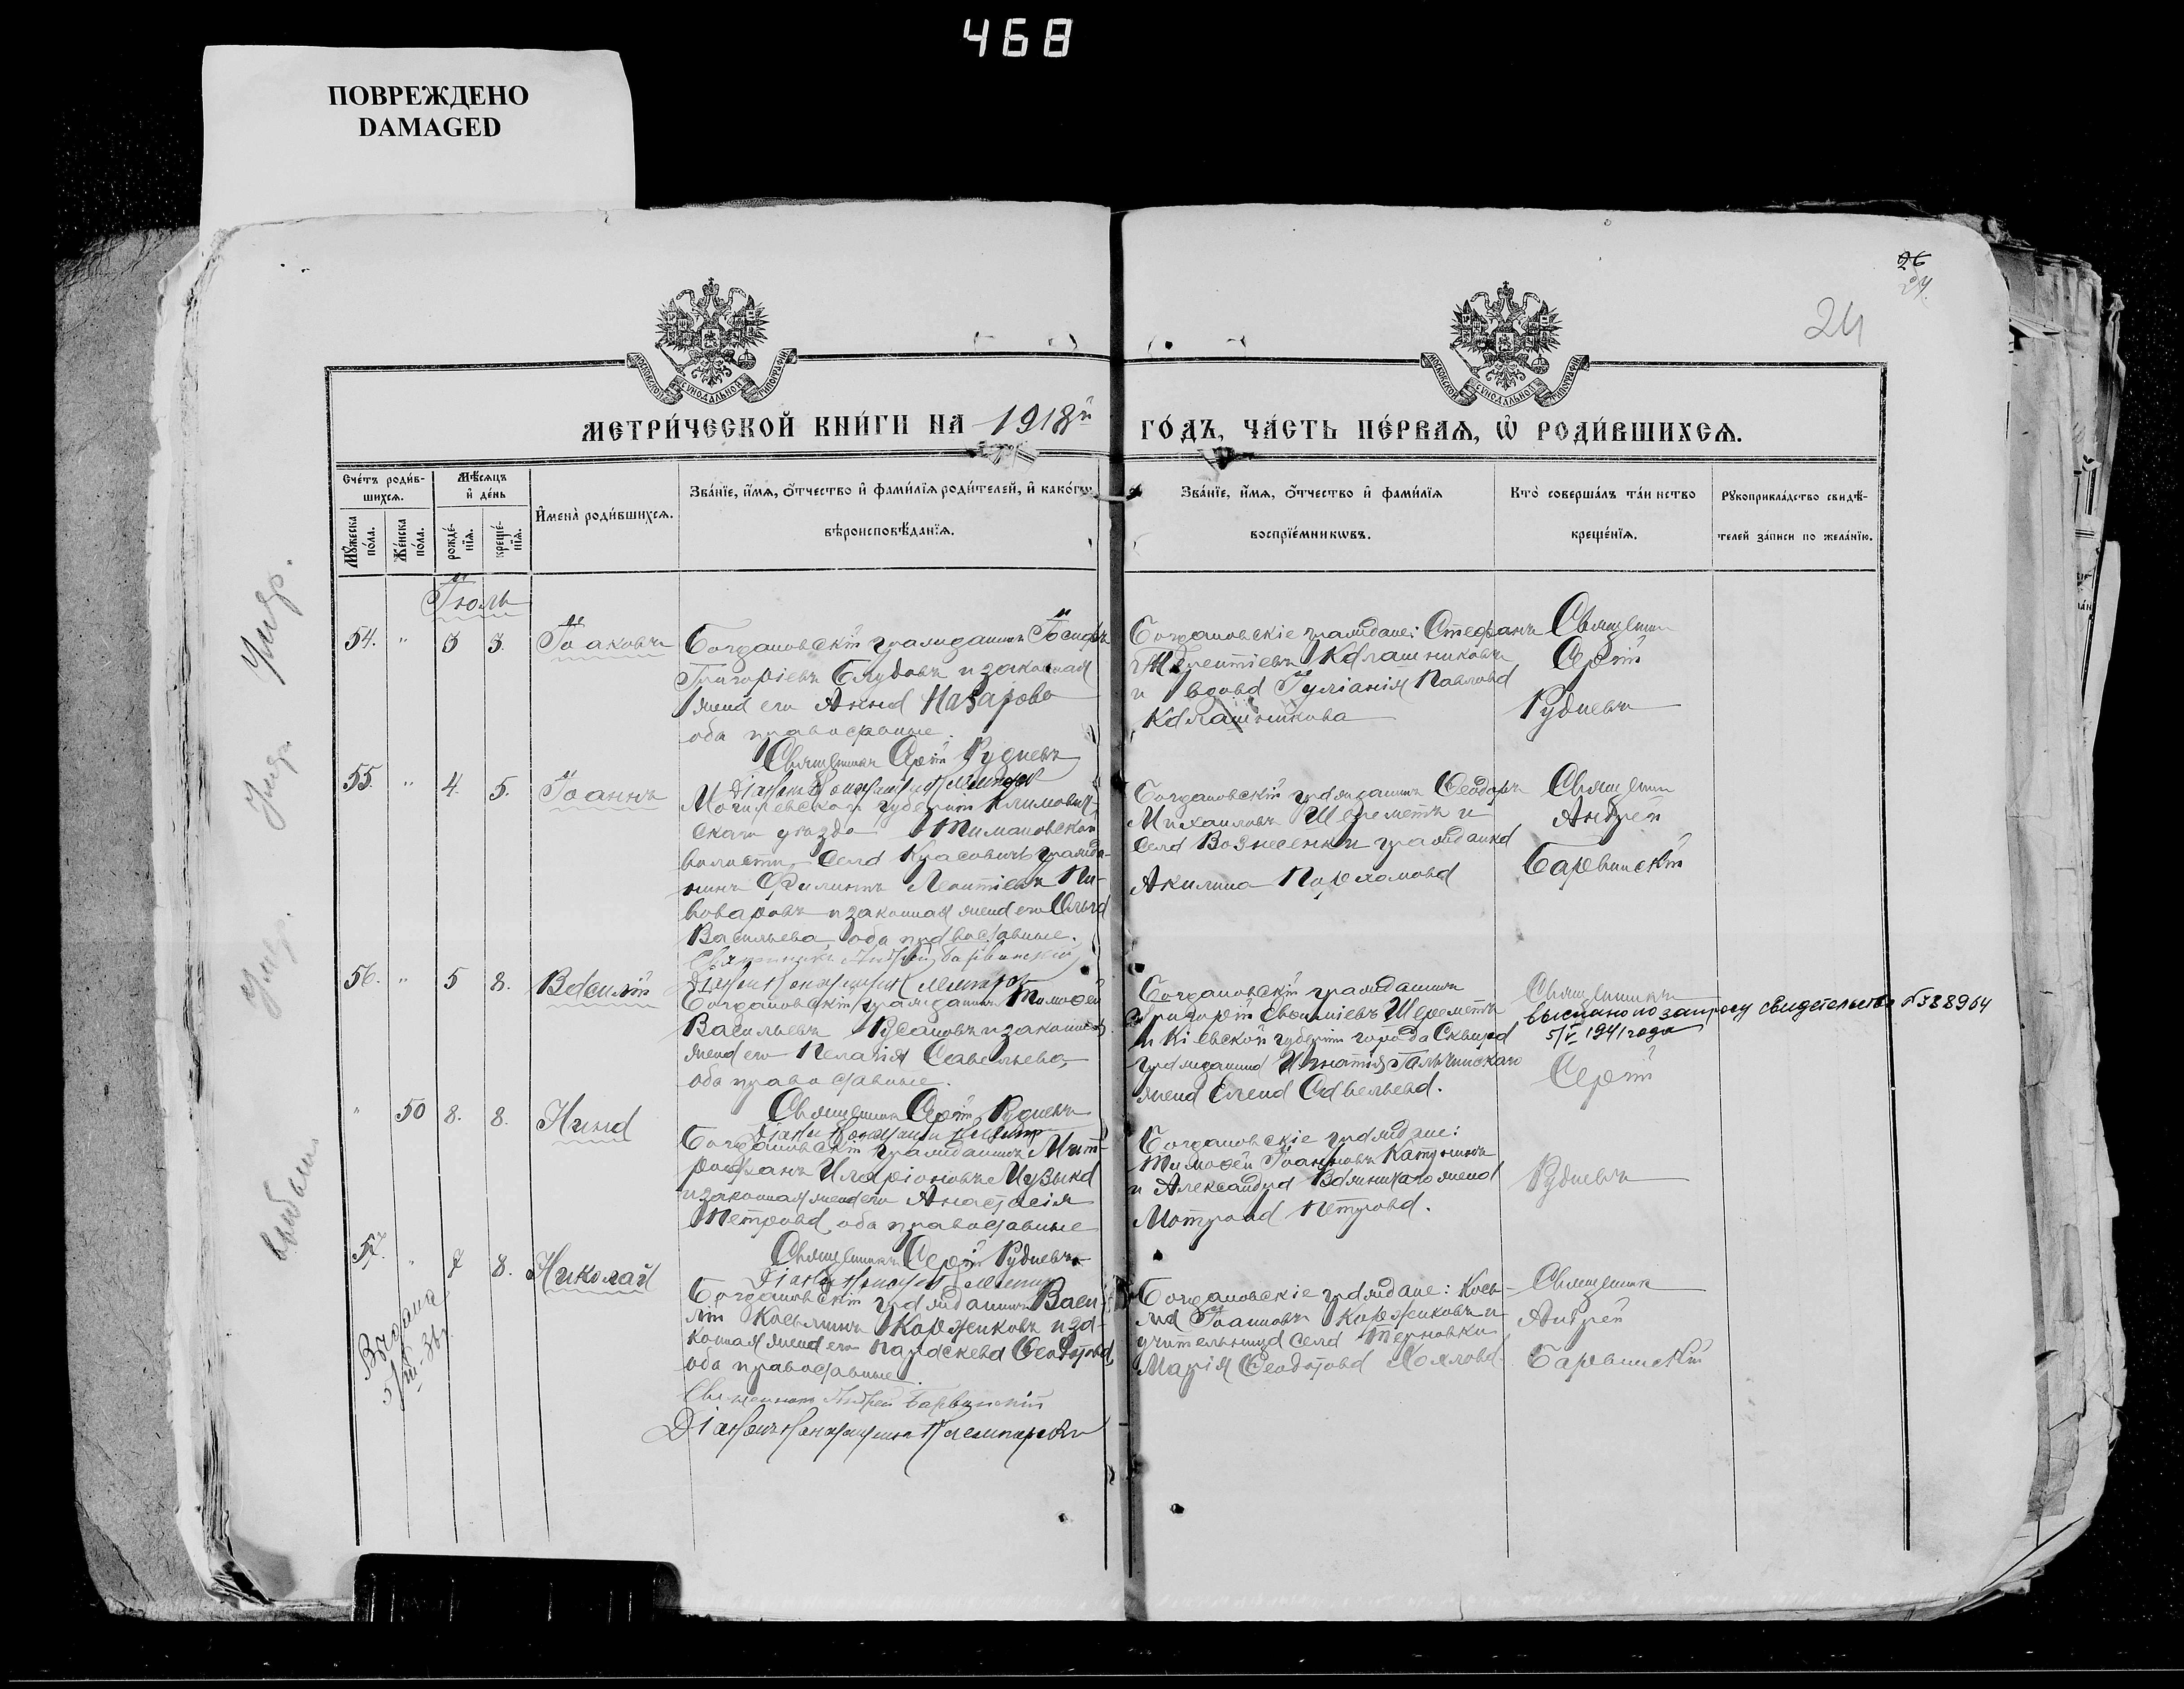 468
ПОВРЕЖДЕНО
DAMAGED
26
24
24
МЕТРИ́ЧЕСКОЙ КНИ́ГИ НА 1918й
ГО́ДЪ, ЧА́СТЬ ПЕ́РВАѦ, Ѡ҆ РОДИ́ВШИХСѦ.
Сче́тъ роди́в-
шихсѧ.
Мѣ́сѧцъ
и҆ де́нь
Мꙋ́жеска
по́ла.
Же́нска
по́ла.
рожде́-
нїѧ.
креще́-
нїѧ.
И҆мена̀ роди́вшихсѧ.
Зва́нїе, и҆́мѧ, ѻ҆́тчество и҆ фами́лїѧ роди́телей, и҆ како́гѡ
вѣроисповѣ́данїѧ.
Зва́нїе, и҆́мѧ, ѻ҆́тчество и҆ фами́лїѧ
воспрїе́мникѡвъ.
Кто̀ соверша́лъ та́инство
креще́нїѧ.
Рꙋкоприкла́дство свидѣ́-
телей за́писи по жела́нїю.
Іюль
54. " 3 3. Іаковъ
Богдановскій гражданинъ Іосифъ
Григоріевъ Блудовъ и законная
жена его Анна Назарова
оба православные.
Священникъ Сергій Рудневъ
Богдановскіе граждане: Стефанъ
Терентіевъ Калашниковъ
и вдова Іуліанія Павлова
Калашникова
Священникъ
Сергій
Рудневъ
55. " 4. 5. Іоаннъ
Могилевской губерніи Климович-
скаго уѣзда Тимановской
волости, села Красовичъ гражда-
нинъ Филиппъ Леонтіевъ Пи-
воваровъ и законная жена его Ольга
Васильева, оба православные.
Священникъ Андрей Барвинскій
Богдановскій гражданинъ Ѳеодоръ
Михаиловъ Шереметъ и
села Вознесенки гражданка
Акилина Пархомова
Священникъ
Андрей
Барвинскій
56. " 5 8. Василій
Богдановскій гражданинъ Тимоѳей
Васильевъ и законная
жена его Пелагія Савельева,
оба православные.
Священникъ Сергій Рудневъ
Богдановскій гражданинъ
Григорій Шереметъ
и Кіевской губерніи города Сквира
гражданина Игнатія Гальчинскаго
жена Елена Савельева.
Священникъ
выслано по запросу свидетельство № 388964
5/V 1941 года
Сергій
" 50 8. 8. Нина
Богдановскій гражданинъ Мит-
рофанъ Иларіоновъ Музыка
и законная жена его Анастасія
Петрова, оба православные
Священникъ Сергій Рудневъ
Богдановскіе граждане:
Тимоѳей Іоанновъ
и Александра жена
Матрона Петрова.
Рудневъ
57. " 7 8. Николай
Богдановскій гражданинъ Васи-
лій Косьминъ Корженковъ и за-
конная жена его Параскева Ѳеодорова
оба православные.
Священникъ Андрей Барвинскій
Богдановскіе граждане: Кось-
ма Іоанновъ Корженковъ и
учительница села Терновки
Марія Ѳеодорова
Священникъ
Андрей
Барвинскій